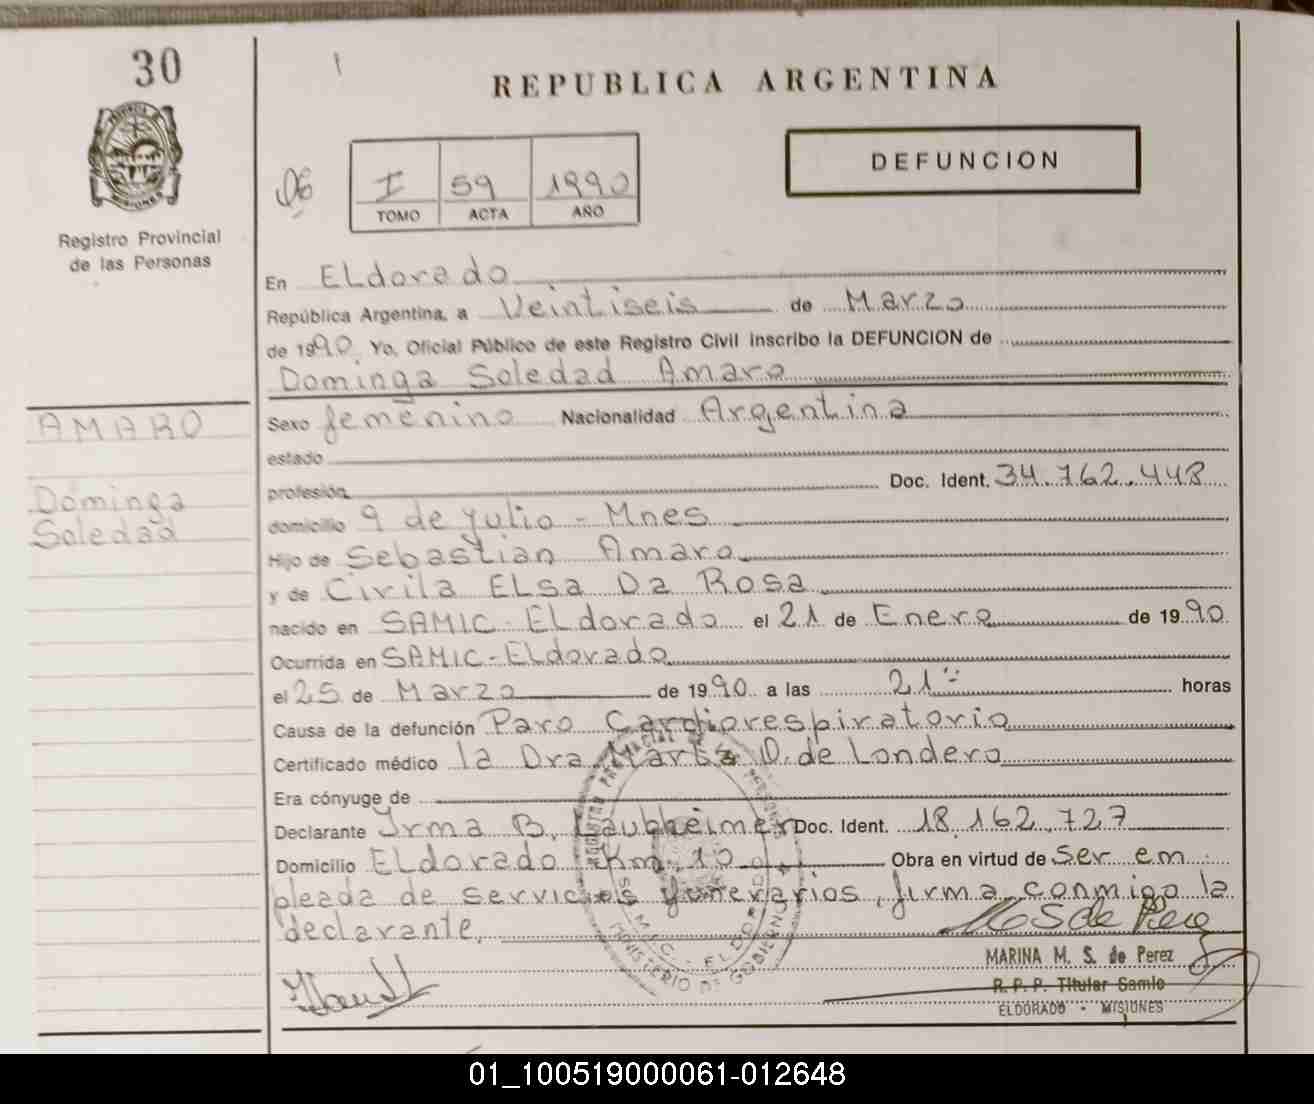 30
REPUBLICA ARGENTINA
DEFUNCION
06
I 59 1990
TOMO ACTA AÑO
MISIONES
Registro Provincial
de las Personas
En ELdorado
República Argentina, a Veintiseis de Marzo
de 1990. Yo, Oficial Público de este Registro Civil inscribo la DEFUNCION de
Dominga Soledad Amaro
AMARO
Dominga
Soledad
Sexo femenino Nacionalidad Argentina
estado
profesión Doc. Ident. 34.762.448
domicilio 9 de yulio - Mnes
Hijo de Sebastian Amaro
y de Civila ELsa Da Rosa
nacido en SAMIC-ELdorado el 21 de Enero de 1990
Ocurrida en SAMIC-ELdorado
el 25 de Marzo de 1990 a las 21 horas
Causa de la defunción Paro Cardiorespiratorio
Certificado médico la Dra Marta O. de Londero
Era cónyuge de
Declarante Yrma B. Laubheimer Doc. Ident. 18.162.727
Domicilio ELdorado Km. 10 Obra en virtud de Ser em
pleada de servicios funerarios, firma conmigo la
declarante.
REGISTRO PROVINCIAL DE LAS PERSONAS
SAMIC - ELDORADO
MINISTERIO DE GOBIERNO
MARINA M. S. de Perez
R. P. P. Titular Samic
ELDORADO - MISIONES
01_100519000061-012648